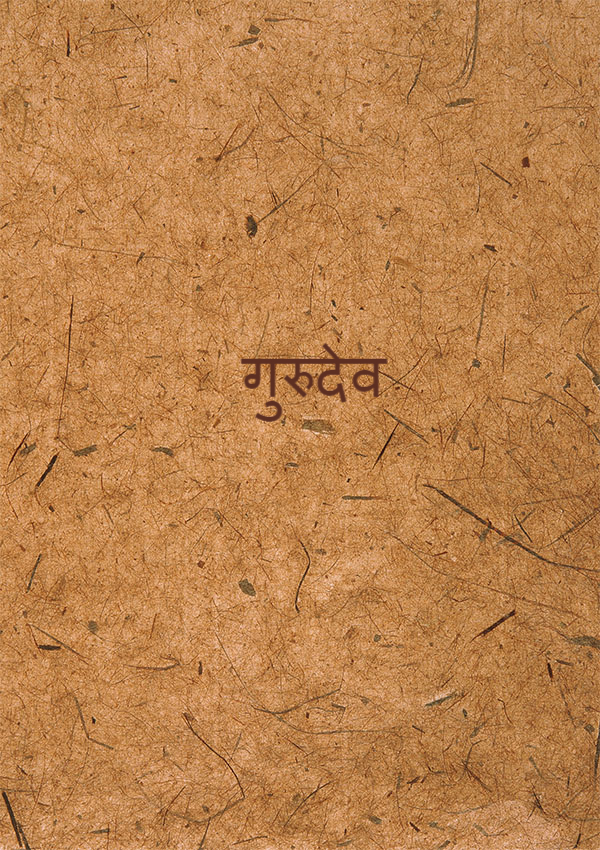 गुरुदेव